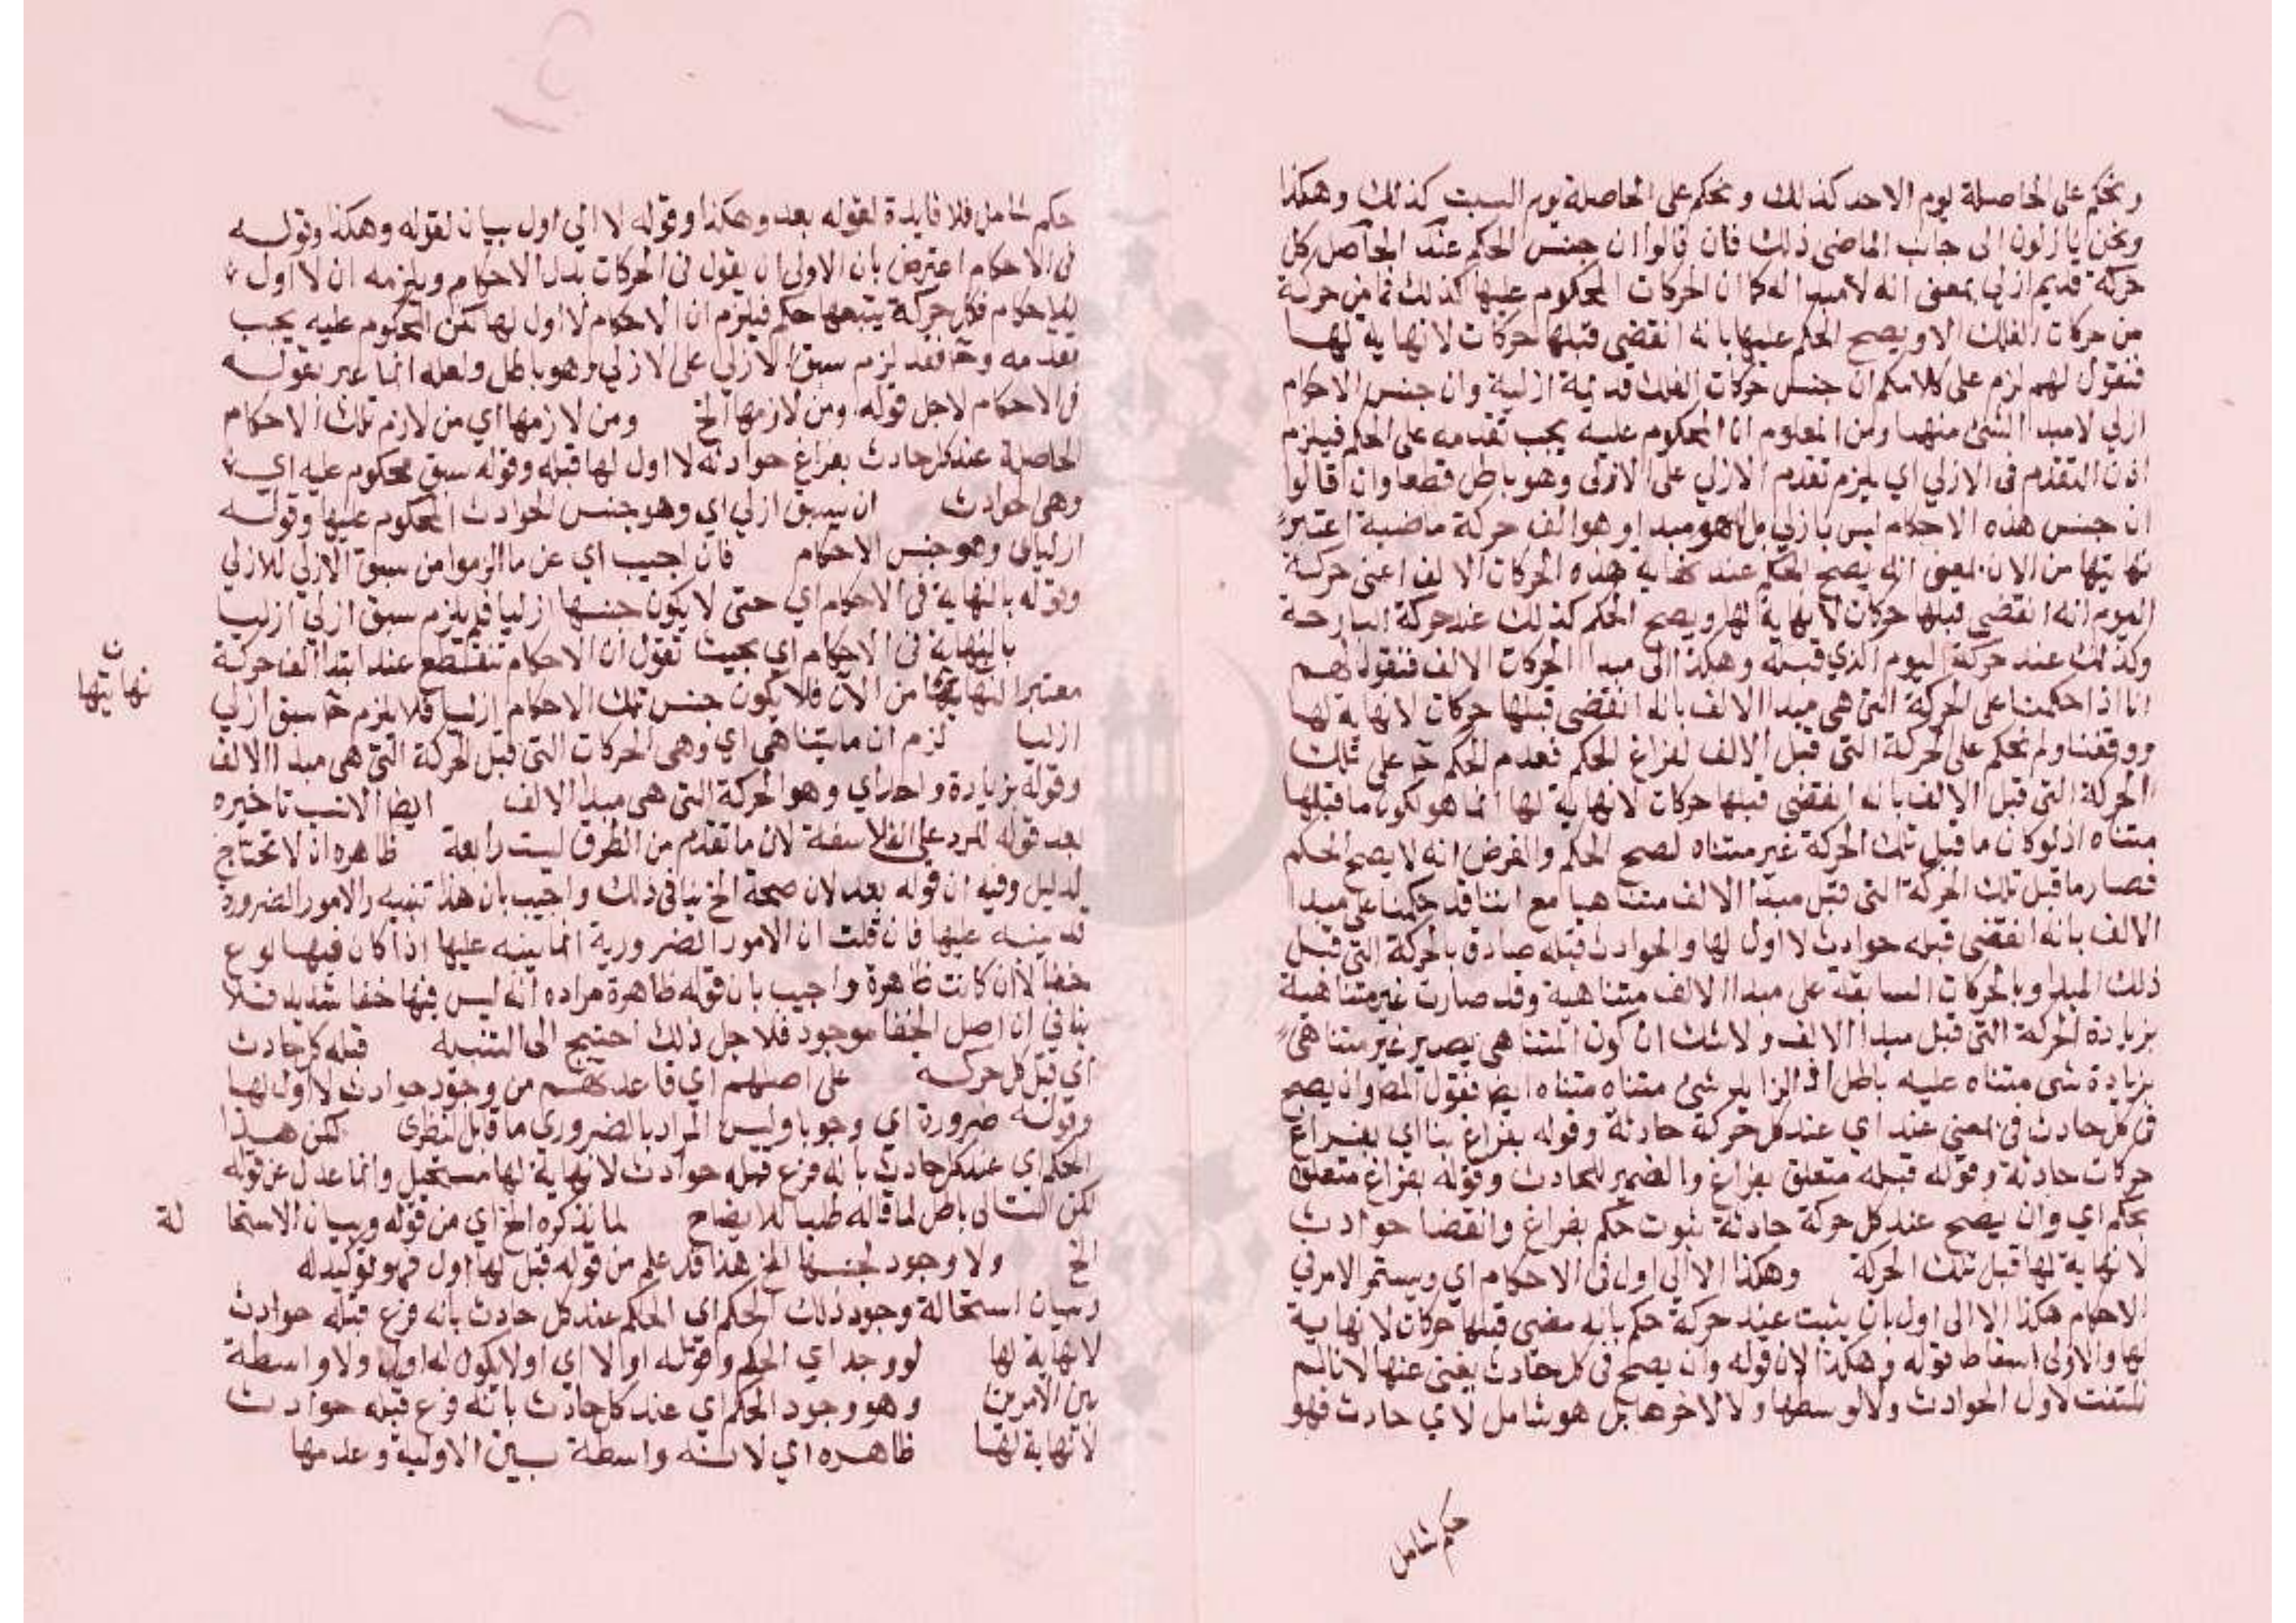 ونحكم على الحاصلة يوم الاحد كذلك ونحكم على الحاصلة يوم السبت كذلك وهكذا
ونحن نازلون الى جانب الماضي ذلك فان قالوا ان جنس الحكم عند الحاصل كل
حركة قديم ازلي بمعنى انه لا مبدا له كما ان الحركات المحكوم عليها كذلك فما من حركة
من حركات الفلك الا ويصح الحكم عليها بانه انقضى قبلها حركات لا نهاية لها
فنقول لهم لزم على كلامكم ان جنس حركات الفلك قديمة ازلية وان جنس الاحكام
ازلي لا مبدا لشئ منهما ومن المعلوم ان المحكوم عليه يجب تقدمه على الحكم فيلزم
اذن التقدم في الازلي اي يلزم تقدم الازلي على الازلي وهو باطل قطعا وان قالوا
ان جنس هذه الاحكام ليس بازلي بل هو مبدا وهو الف حركة ماضية اعتبر
نهايتها من الان بمعنى انه يصح الحكم عند نهاية هذه الحركات الالف اعني حركة
اليوم انه انقضى قبلها حركات لا نهاية لها ويصح الحكم كذلك عند حركة البارحة
وكذلك عند حركة اليوم الذي قبله وهكذا الى مبدا الحركات الالف فنقول لهم
انا اذا حكمنا على الحركة التي هي مبدا الالف بانه انقضى قبلها حركات لا نهاية لها
ووقفنا ولم نحكم على الحركة التي قبل الالف لفراغ الحكم فعدم الحكم ح على تلك
الحركة التي قبل الالف بانه انقضى قبلها حركات لا نهاية لها انما هو لكون ما قبلها
متناه اذ لو كان ما قبل تلك الحركة غير متناه لصح الحكم والفرض انه لا يصح الحكم
فصار ما قبل تلك الحركة التي قبل مبدا الالف متناهيا مع اننا قد حكمنا على مبدا
الالف بانه انقضى قبله حوادث لا اول لها والحوادث قبله صادق بالحركة التي قبل
ذلك المبدا وبالحركات السابقة على مبدا الالف متناهية وقد صارت غير متناهية
بزيادة الحركة التي قبل مبدا الالف ولا شك ان كون المتناهي يصير غير متناهي
بزيادة شئ متناه عليه باطل اذ الزايد شئ متناه متناه ايض فنقول المص وان يصح
في كل حادث في بمعنى عند اي عند كل حركة حادثة وقوله بفراغ بنا اي بفراغ
حركات حادثة وقوله قبله متعلق بفراغ والضمير للحادث وقوله بفراغ متعلق
بحكم اي وان يصح عند كل حركة حادثة ثبوت حكم بفراغ وانقضا حوادث
لا نهاية لها قبل تلك الحركة وهكذا لا الى اول في الاحكام اي ويستمر الامر في
الاحكام هكذا لا الى اول بان يثبت عند حركة حكم بانه مضى قبلها حركات لا نهاية
لها والاولى اسقاط قوله وهكذا لان قوله وان يصح في كل حادث يغني عنها لانا لم
نلتفت لاول الحوادث ولا لوسطها ولا لاخرها بل هو شامل لاي حادث فهو
حكم شامل
حكم شامل فلا فايدة لقوله بعد وهكذا وقوله لا الى اول بيان لقوله وهكذا وقوله
في الاحكام اعترض بان الاولى ان يقول في الحركات بدل الاحكام ويلزمه ان لا اول
للاحكام فكل حركة يتبعها حكم فيلزم ان الاحكام لا اول لها لكن المحكوم عليه يجب
تقدمه وح فقد لزم سبق الازلي على الازلي وهو باطل ولعله انما عبر بقوله
في الاحكام لاجل قوله ومن لازمها الخ ومن لازمها اي من لازم تلك الاحكام
الحاصلة عند كل حادث بفراغ حوادثه لا اول لها قبله وقوله سبق محكوم عليه اي
وهي حوادث ان يسبق ازلي اي وهو جنس الحوادث المحكوم عليها وقوله
ازليا اي وهو جنس الاحكام فان اجيب اي عن ما الزموا من سبق الازلي للازلي
وقوله بالنهاية في الاحكام اي حتى لا يكون جنسها ازليا فلم يلزم سبق ازلي ازليا
بالنهاية في الاحكام اي بحيث نقول ان الاحكام تنقطع عند ابتدا الف حركة
معتبرا نهايتها من الان فلا يكون جنس تلك الاحكام ازليا فلا يلزم ح سبق ازلي
ن
نهايتها
ازليا لزم ان ما يتناهى اي وهي الحركات التي قبل الحركة التي هي مبدا الالف
وقوله بزيادة واحد اي وهو الحركة التي هي مبدا الالف ايضا الانسب تاخيره
بعد قوله للرد على الفلاسفة لان ما تقدم من الطرق ليست رابعة ظاهره ان لا تحتاج
لدليل وفيه ان قوله بعد لان صحة الخ ينافي ذلك واجيب بان هذا تنبيه والامور الضرورة
قد ينبه عليها فان قلت ان الامور الضرورية انما ينبه عليها اذا كان فيها نوع
خفا لا ان كانت ظاهرة واجيب بان قوله ظاهرة مراده انه ليس فيها خفا شديد فلا
ينافي ان اصل الخفا موجود فلاجل ذلك احتيج الى التنبيه قبله كل حادث
اي قبل كل حركة على اصلهم اي قاعدتهم من وجود حوادث لا اول لها
وقوله ضرورة اي وجوبا وليس المراد بالضروري ما قابل النظري لكن هذا
الحكم اي عند كل حادث بانه فرغ قبله حوادث لا نهاية لها مستحيل وانما عدل عن قوله
لكن التالي باطل لما قاله طلبا للايضاح بما يذكره الخ اي من قوله وبيان الاستحا
لة
الخ ولا وجود لجنسها الخ هذا قد علم من قوله قبل لها اول فهو توكيد له
وبيان استحالة وجود ذلك الحكم اي الحكم عند كل حادث بانه فرغ قبله حوادث
لا نهاية لها لو وجد اي الحكم وقوله او لا اي او لا يكون له اول ولا واسطة
بين الامرين وهو وجود الحكم اي عند كل حادث بانه فرغ قبله حوادث
لا نهاية لها ظاهره اي لانه واسطة بين الاولية وعدمها